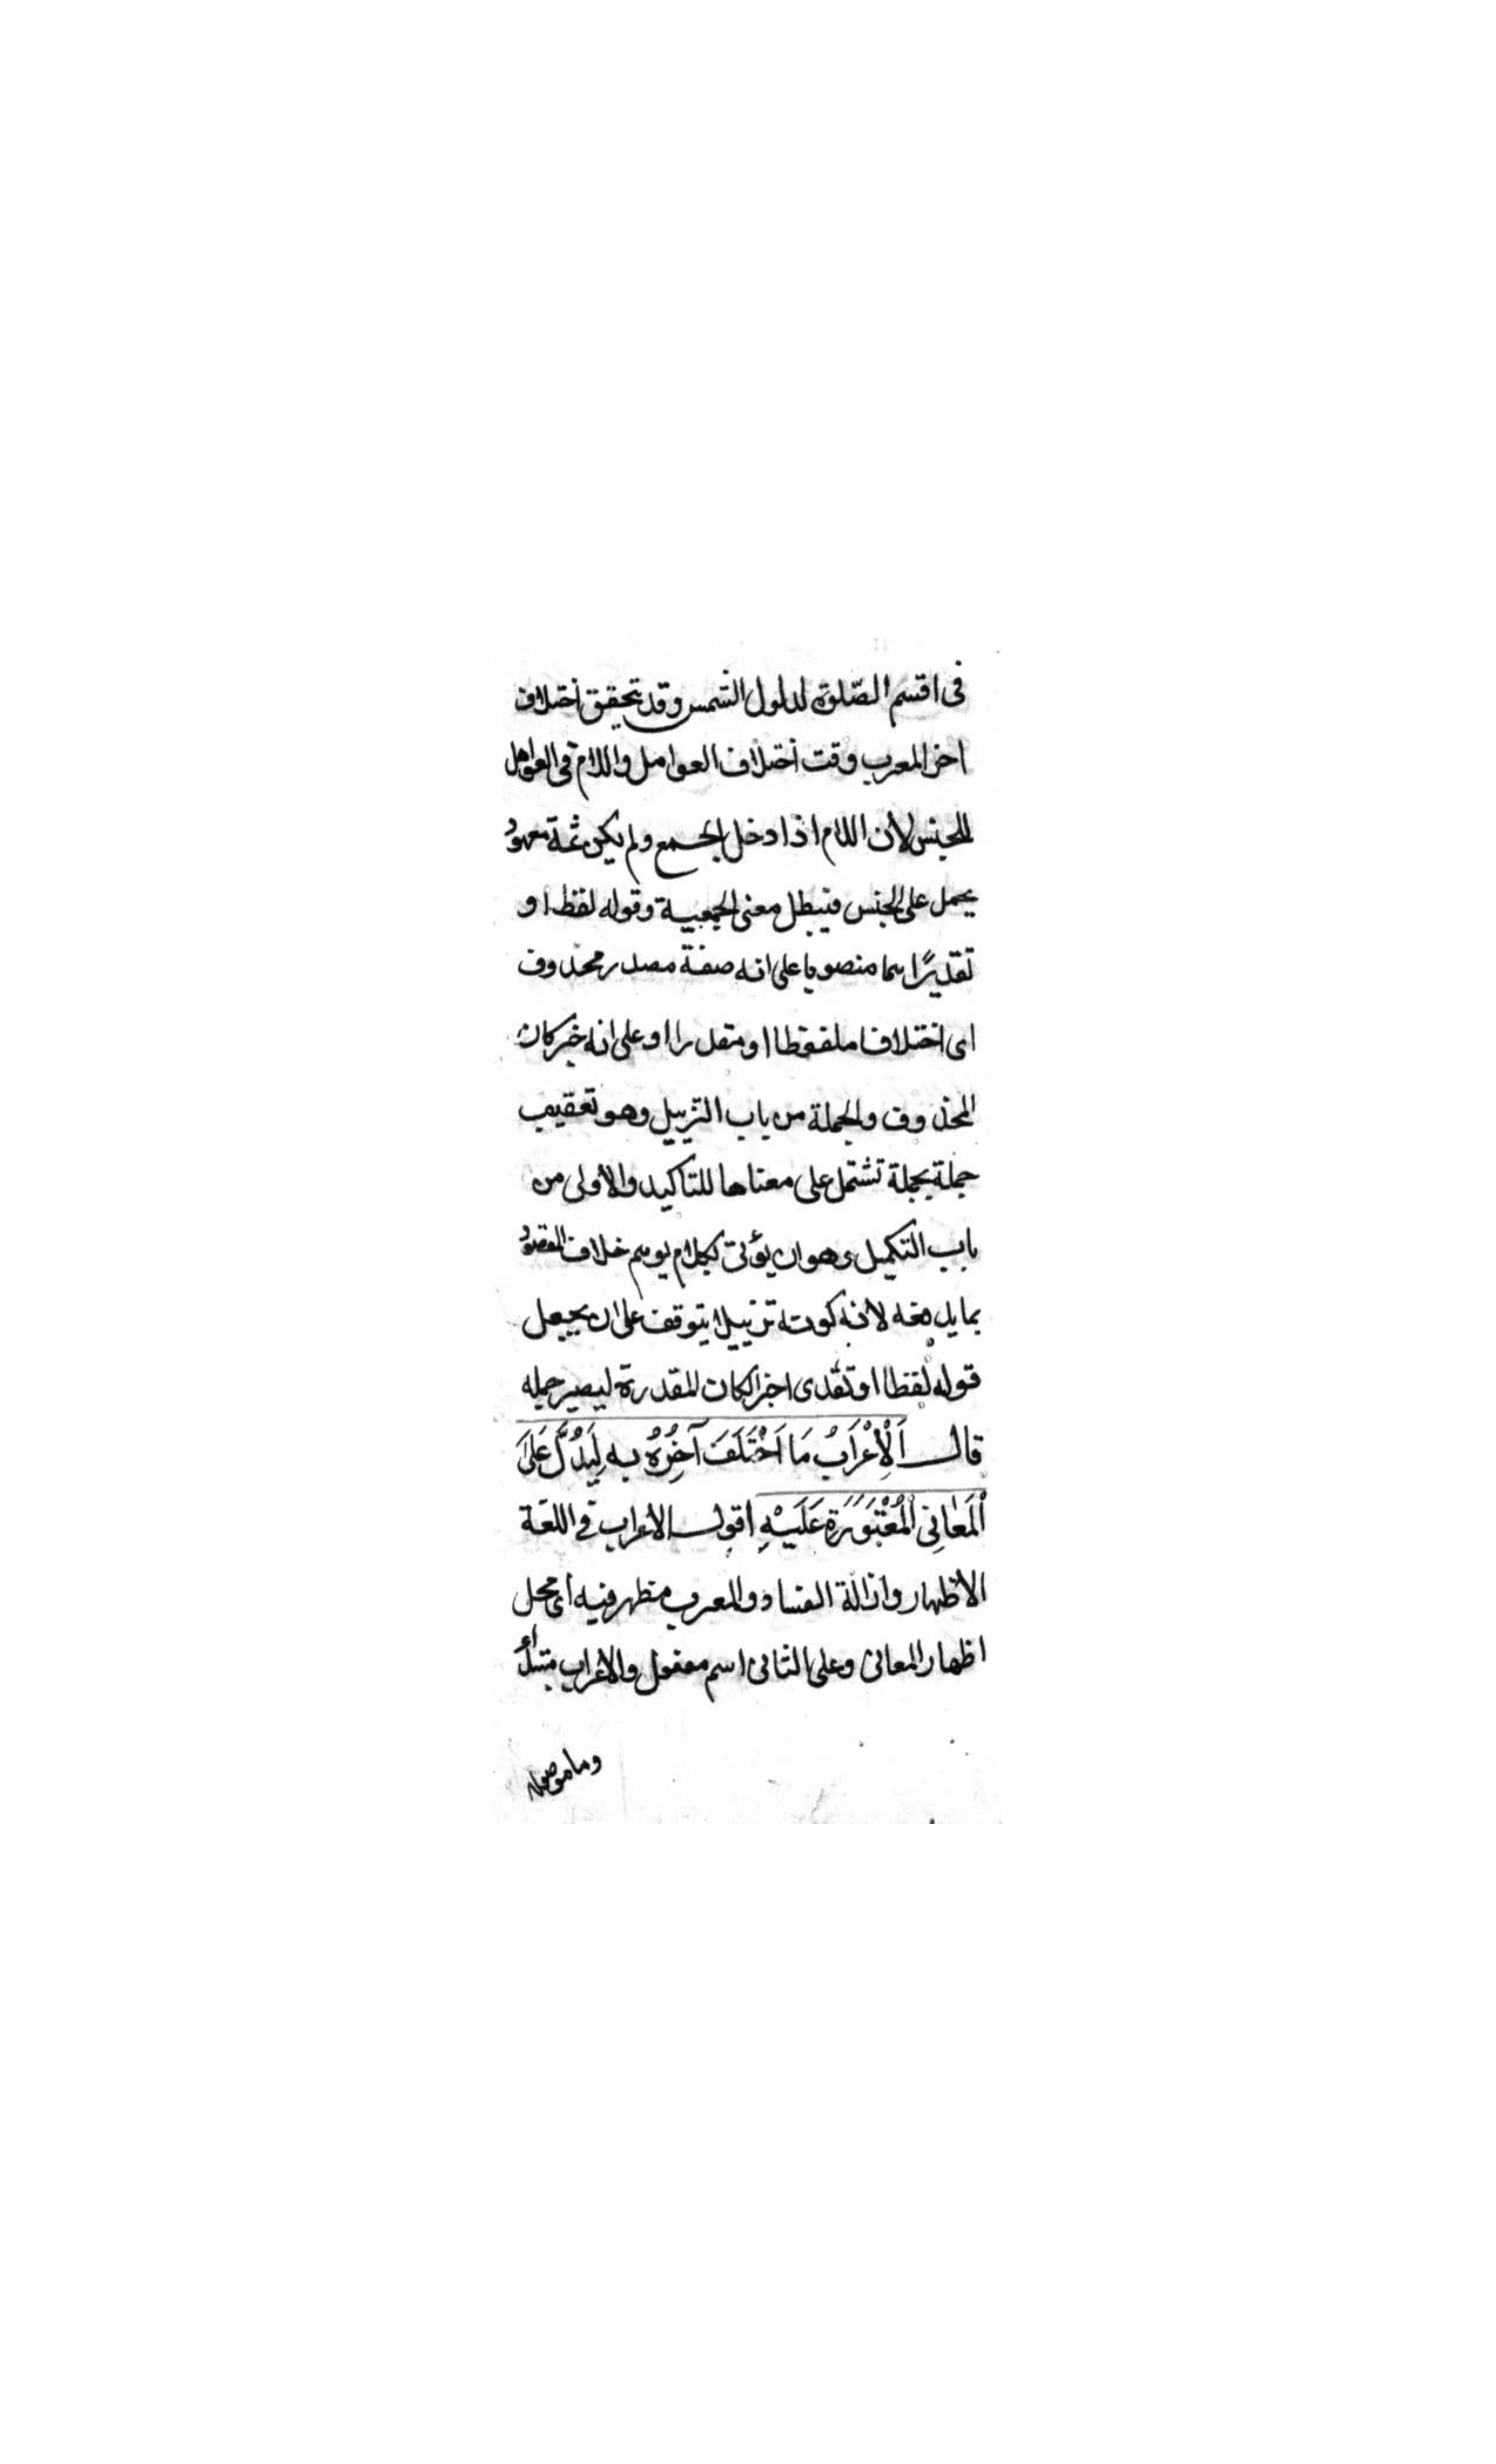 فى اقسم الصّلوة لدلوك الشمس وقد تحقيق اختلاف
اخر المعرب وقت اختلاف العوامل واللام فى العوامل
للجنس لأن اللام اذا دخل الجمع ولم يكن ثمة معهود
يحمل على الجنس فيبطل معنى الجمعية وقوله لفظا او
تقديرًا اسما منصوبا على انه صفة مصدر محذوف
اى اختلافا ملفوظا او مقدرا او على انه خبر كان
المحذوف والجملة من باب التزييل وهو تعقيب
جملة بجملة تشتمل على معناها للتاكيد والاولى من
باب التكميل وهو ان يؤتى بكلام يوهم خلاف المقصود
بما يدفعه لانه كونه تزييلا يتوقف على ان يجعل
قوله لفظا او تقدى اخبر الكان المقدرة ليصير جمله
قال اَلْاِعْرَابُ مَا اَخْتَلَفَ آخِرُهُ بِه لِيَدُلَّ عَلَى
اَلْمَعٰانِى اَلْمُعْتَوِرَةِ عَلَيْهِ اقول الاعراب فى اللغة
الاظهار وازالة الفساد والمعرب مظهر فيه اى محل
اظهار المعانى وعلى الثانى اسم مفعول والاعراب مبتدأ
وما موصوله